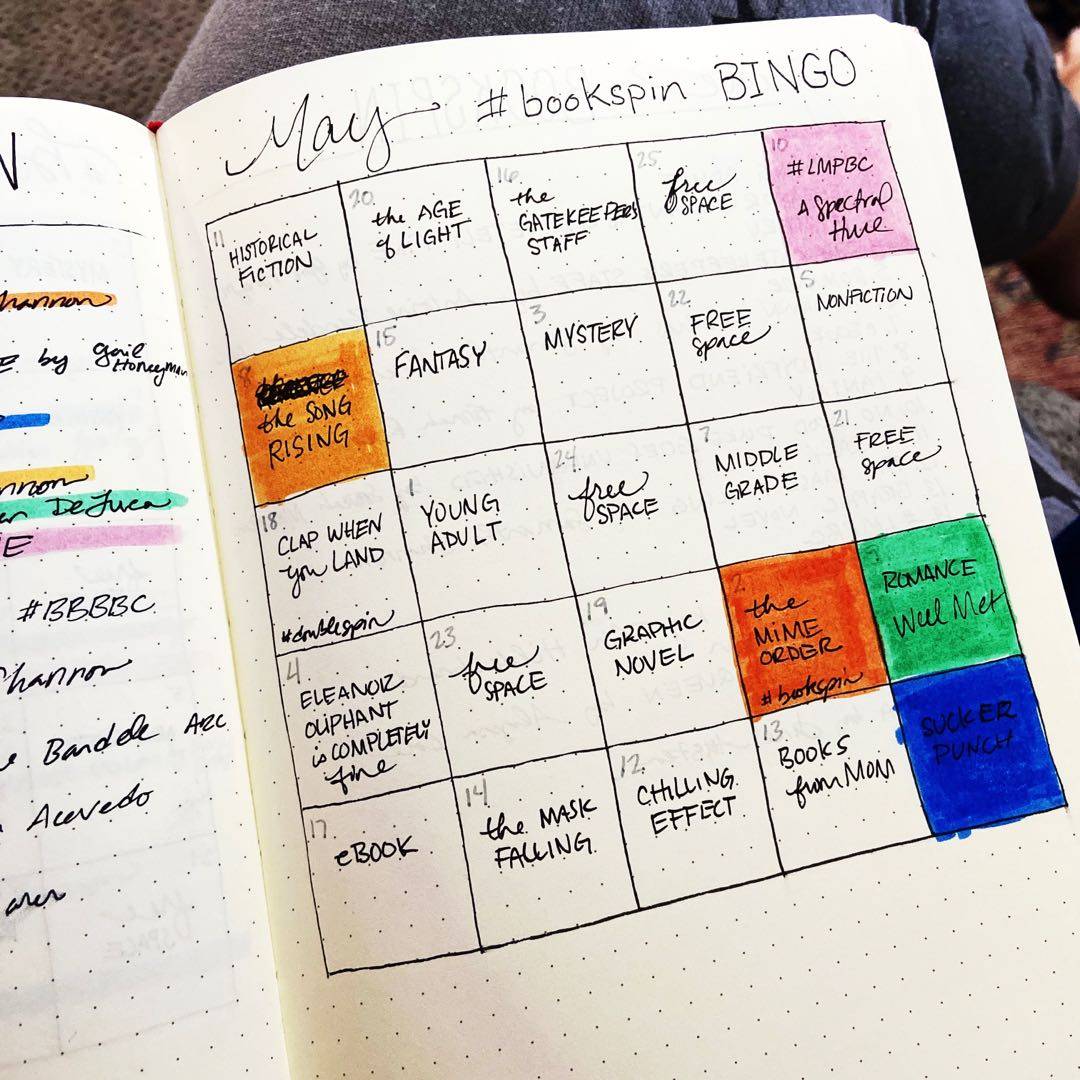 N
Shannon
E by Gail
Honeyman
nnon
DeLuca
E
#BBBBC
Shannon
Bandele ARC
Acevedo
May #bookspin BINGO
11
HISTORICAL
FICTION
20
the AGE
of LIGHT
16
the
GATEKEEPER'S
STAFF
25
free
SPACE
10
#LMPBC
A Spectral
Hue
8
the SONG
RISING
15
FANTASY
3
MYSTERY
22
FREE
space
5
NONFICTION
18
CLAP WHEN
you LAND
#doublespin
1
YOUNG
ADULT
24
free
SPACE
7
MIDDLE
GRADE
21
FREE
space
4
ELEANOR
OLIPHANT
is COMPLETELY
fine
23
free
SPACE
19
GRAPHIC
NOVEL
2
the
MIME
ORDER
#bookspin
9
ROMANCE
Well Met
17
eBOOK
14
the MASK
FALLING
12
CHILLING
EFFECT
13
BOOKS
from MOM
SUCKER
PUNCH